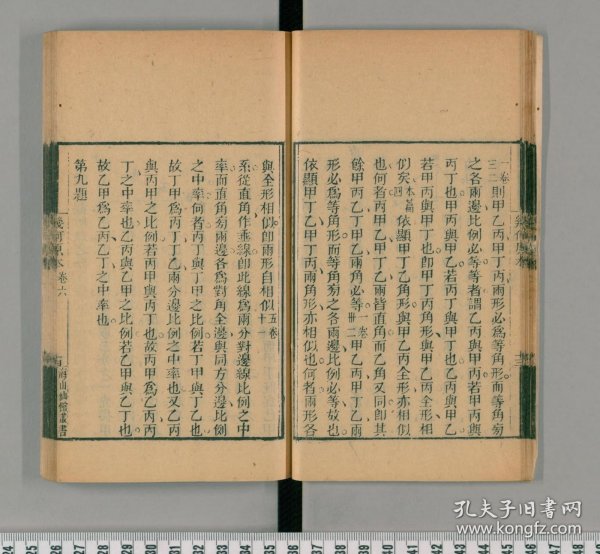 三二則甲乙丙甲丁丙兩形必爲等角形而等角旁
一卷
之各兩邊比例必等等者謂乙丙與甲丙若甲丙與
丙丁也甲丙與甲乙若丙丁與甲丁也乙丙與甲乙
若甲丙與甲丁也即甲丁丙角形與甲乙丙全形相
似矣本篇四依顯甲丁乙角形與甲乙丙全形亦相似
也何者丙甲乙甲丁乙兩皆直角而乙角又同即其
餘甲丙乙丁甲乙兩角必等一卷卅二甲乙丙甲丁乙兩
形必爲等角形而等角旁之各兩邊比例必等故也
依顯甲丁乙甲丁丙兩角形亦相似也何者兩形各
與全形相似即兩形自相似五卷十一
系從直角作垂線即此線爲兩分對邊線比例之中
率而直角旁兩邊各爲對角全邊與同方分邊比例
之中率何者丙丁與丁甲之比例若丁甲與丁乙也
故丁甲爲丙丁丁乙兩分邊比例之中率也又乙丙
與丙甲之比例若丙甲與丙丁也故丙甲爲乙丙丙
丁之中率也乙丙與乙甲之比例若乙甲與乙丁也
故乙甲爲乙丙乙丁之中率也
第九題
幾何原本 卷六
海山仙館叢書
孔夫子旧书网
www.kongfz.com